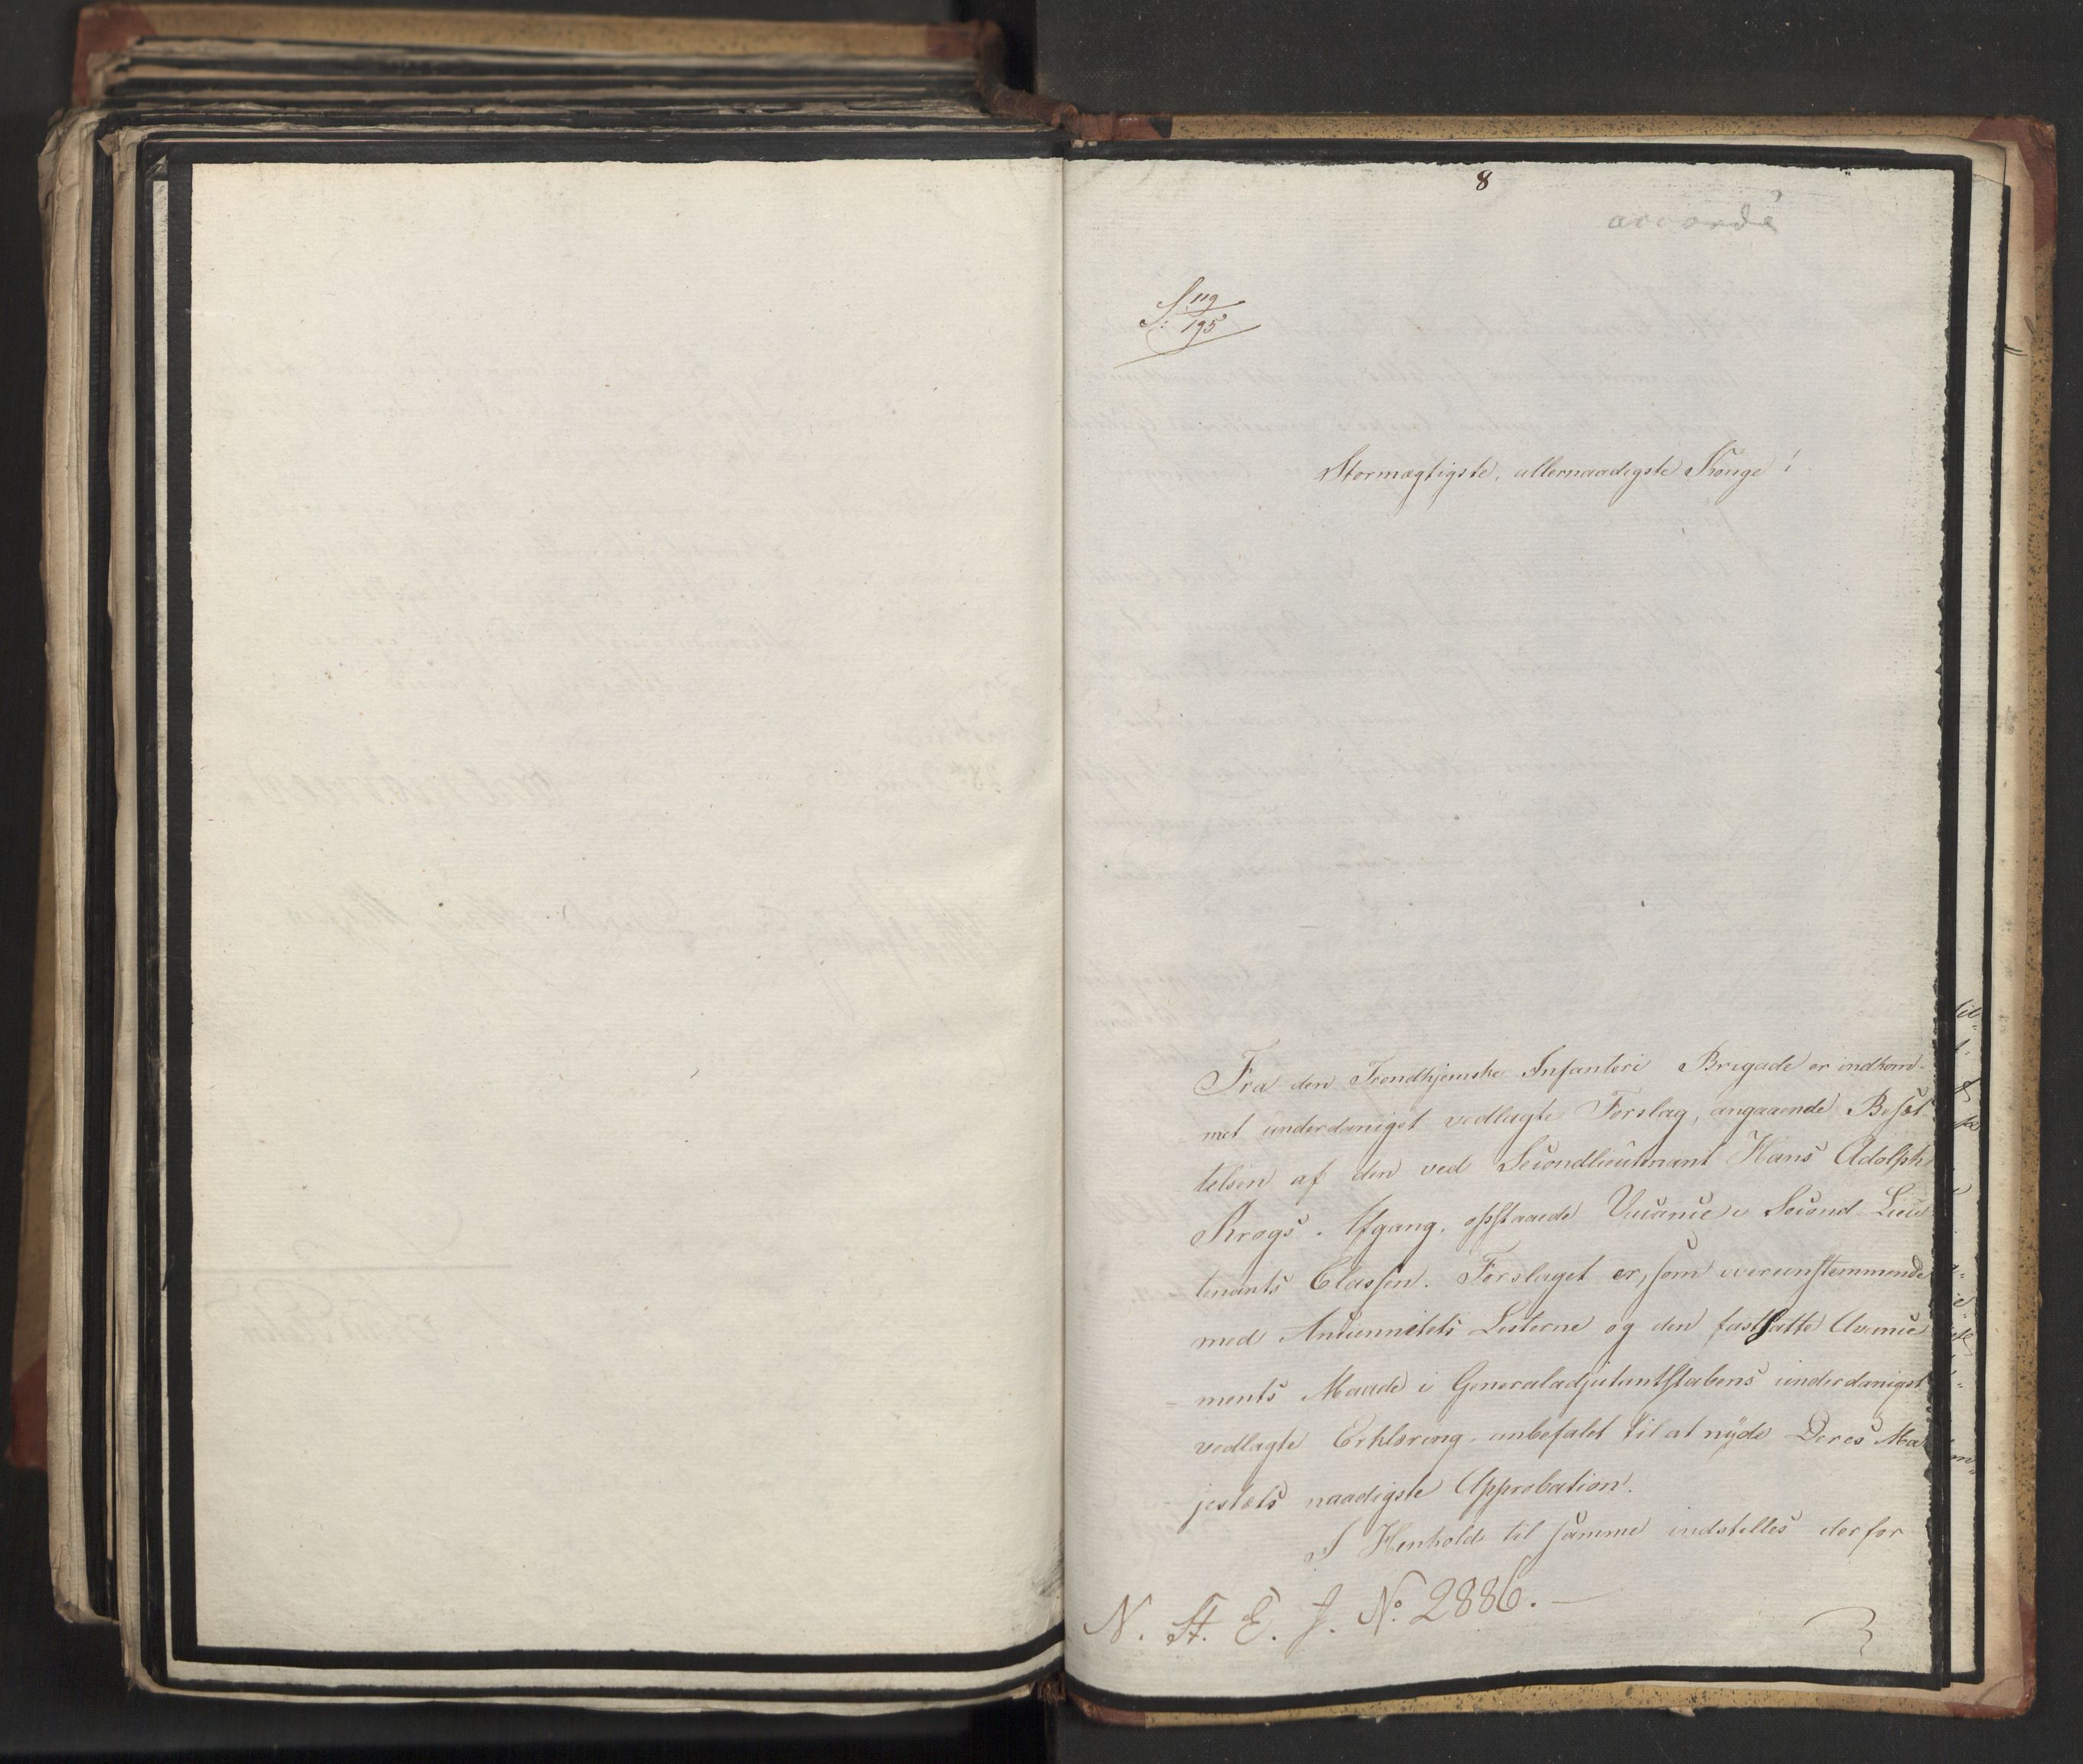 8
accordé
S: 119/195
Stormægtigste, allernaadigste Konge!
Fra den Trondhjemske Infanteri Brigade er indkom-
met underdanigst vedlagte Forslag, angaaende Besæt
telsen af den ved Secondlieutenant Hans Adolph
Krogs Afgang, opstaaede Vacance i Second Lieu
tenants Classen. Forslaget er, som overeensstemmende
med Anciennitets Listerne og den fastsatte Avance
ments Maade i Generaladjutantstabens underdanigst
vedlagte Erklæring anbefalet til at nyde Deres Ma
jestæts naadigste Approbation.
I Henhold til samme indstilles derfor
N. St. E. J. No. 2886.